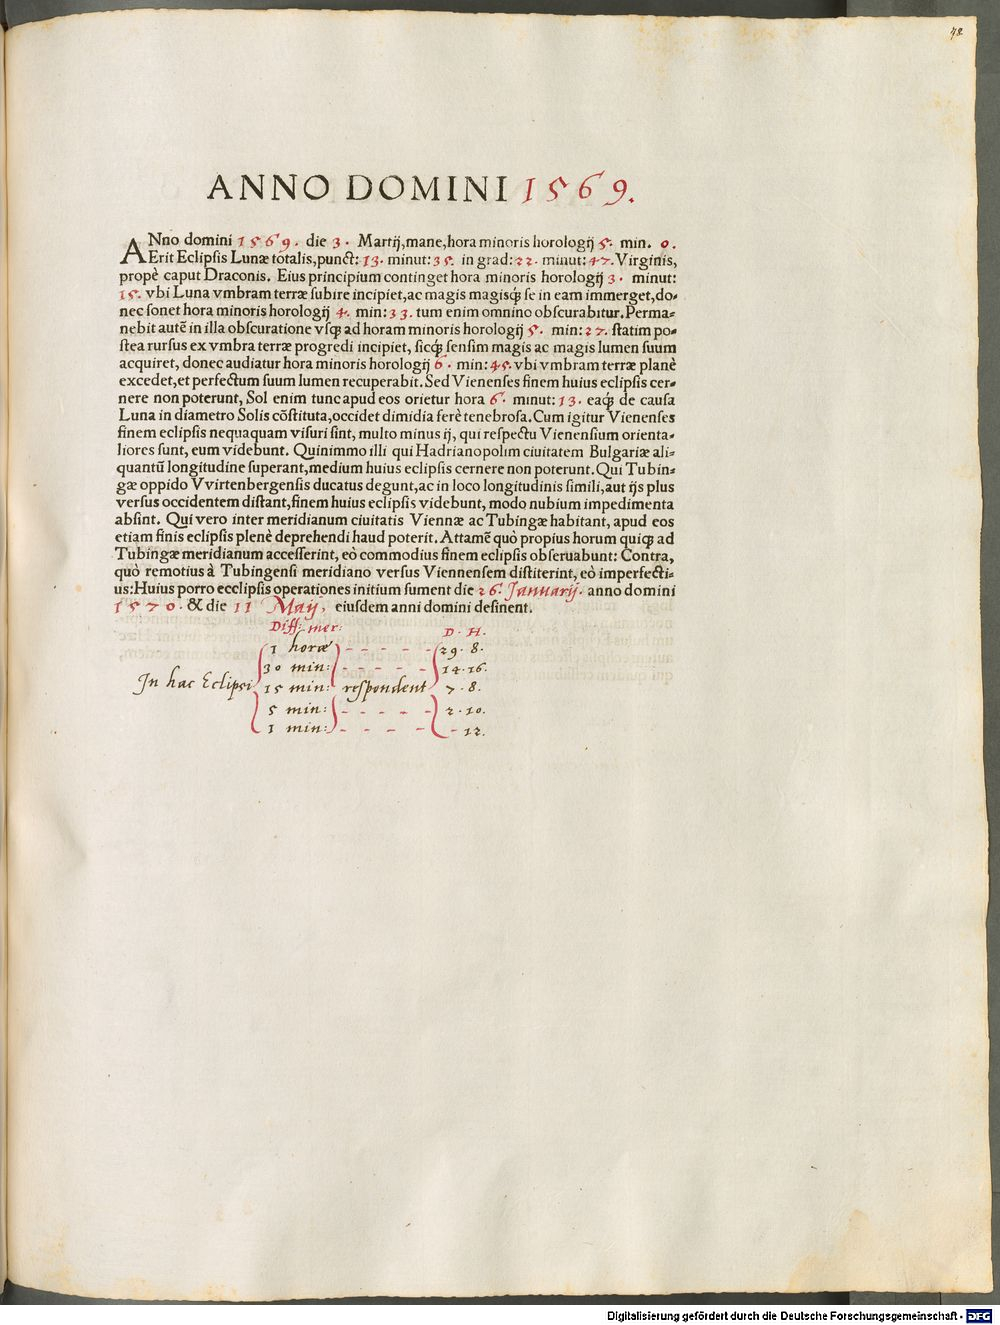 48
ANNO DOMINI 1569.
ANno domini 1569. die 3. Martij, mane, hora minoris horologij 5. min. 0.
Erit Eclipsis Lunæ totalis, punct: 13. minut: 35. in grad: 22. minut: 47. Virginis,
propè caput Draconis. Eius principium continget hora minoris horologij 3. minut:
15. vbi Luna vmbram terræ subire incipiet, ac magis magisq́; se in eam immerget, do-
nec sonet hora minoris horologij 4. min: 33. tum enim omnino obscurabitur. Perma-
nebit autē in illa obscuratione vsq; ad horam minoris horologij 5. min: 27. statim po-
stea rursus ex vmbra terræ progredi incipiet, sicq́; sensim magis ac magis lumen suum
acquiret, donec audiatur hora minoris horologij 6. min: 45. vbi vmbram terræ planè
excedet, et perfectum suum lumen recuperabit. Sed Vienenses finem huius eclipsis cer-
nere non poterunt, Sol enim tunc apud eos orietur hora 6. minut: 13. eaq́; de causa
Luna in diametro Solis cõstituta, occidet dimidia ferè tenebrosa. Cum igitur Vienenses
finem eclipsis nequaquam visuri sint, multo minus ij, qui respectu Vienensium orienta-
liores sunt, eum videbunt. Quinimmo illi qui Hadrianopolim ciuitatem Bulgariæ ali-
quantū longitudine superant, medium huius eclipsis cernere non poterunt. Qui Tubin-
gæ oppido Vvirtenbergensis ducatus degunt, ac in loco longitudinis simili, aut ijs plus
versus occidentem distant, finem huius eclipsis videbunt, modo nubium impedimenta
absint. Qui vero inter meridianum ciuitatis Viennæ ac Tubingæ habitant, apud eos
etiam finis eclipsis plenè deprehendi haud poterit. Attamē quò propius horum quiq; ad
Tubingæ meridianum accesserint, eò commodius finem eclipsis obseruabunt: Contra,
quò remotius à Tubingensi meridiano versus Viennensem distiterint, eò imperfecti-
us: Huius porro ecclipsis operationes initium sument die 26. Januarij. anno domini
1570. & die 11 Maij, eiusdem anni domini desinent.
Diff: mer: D. H.
1 horæ - - - - 29. 8.
30 min: - - - - 14. 16.
In hac Eclipsi 15 min: respondent 7. 8.
5 min: - - - - - 2. 10.
1 min: - - - - - 12.
Digitalisierung gefördert durch die Deutsche Forschungsgemeinschaft - DFG